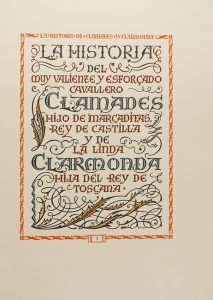 LA HISTORIA DE CLAMADES Y CLARMONDA
LA HISTORIA
DEL
MUY VALIENTE Y ESFORÇADO
CAVALLERO
CLAMADES
HIJO DE MARCADITAS
REY DE CASTILLA
Y DE
LA LINDA
CLARMONDA
HIJA DEL REY DE
TOSCANA